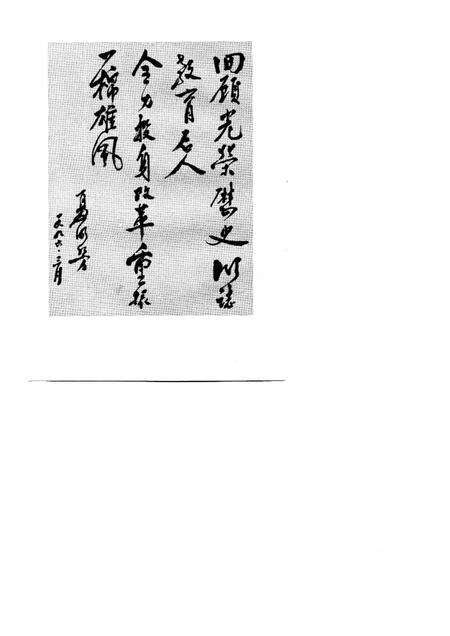 回顾光荣历史以志
教育后人
全力投身改革重振
一棉雄风
一九九六.三月